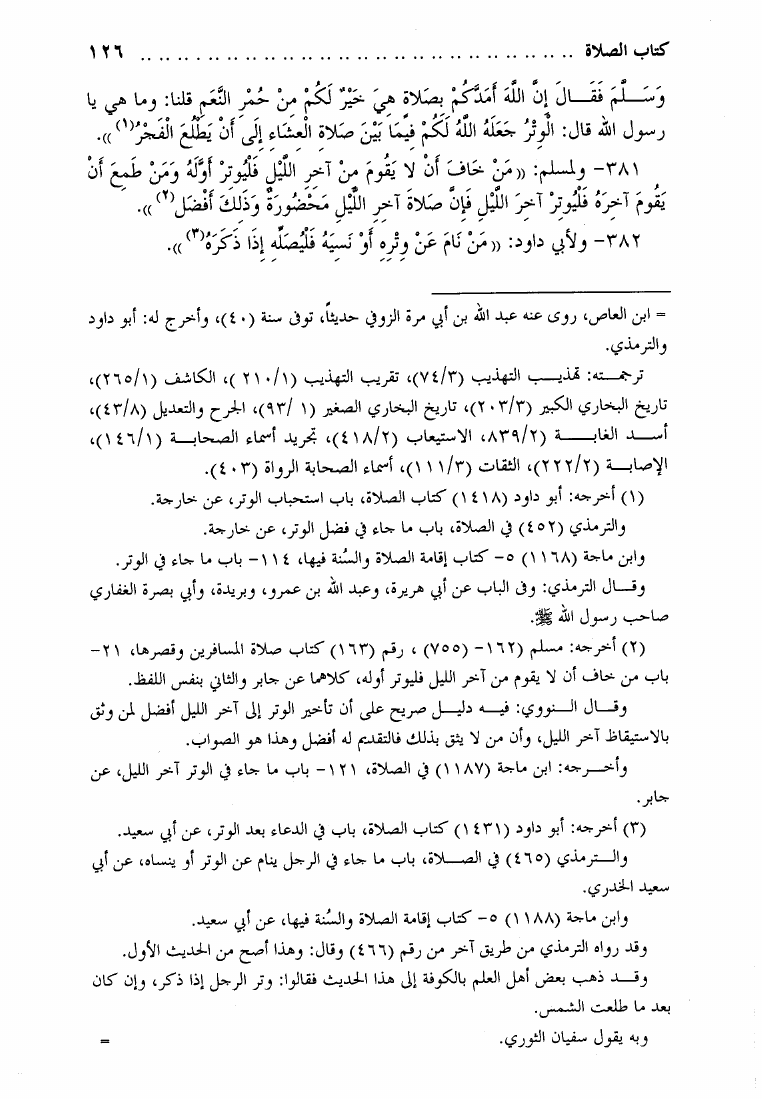 كتاب الصلاة .. .. .. .. .. .. .. .. .. .. .. .. .. .. .. .. .. .. .. .. .. .. ١٢٦
وَسَـلَّمَ فَقَـالَ إِنَّ اللَّهَ أَمَدَّكُمْ بِصَلاةٍ هِيَ خَيْرٌ لَكُمْ مِنْ حُمْرِ النَّعَمِ قلنا: وما هي يا
رسول الله قال: الْوِتْرُ جَعَلَهُ اللَّهُ لَكُمْ فِيمَا بَيْنَ صَلاةِ الْعِشَاءِ إِلَى أَنْ يَطْلُعَ الْفَجْرُ(١)».
٣٨١- ولمسلم: «مَنْ خَافَ أَنْ لا يَقُومَ مِنْ آخِرِ اللَّيْلِ فَلْيُوتِرْ أَوَّلَهُ وَمَنْ طَمِعَ أَنْ
يَقُومَ آخِرَهُ فَلْيُوتِرْ آخِرَ اللَّيْلِ فَإِنَّ صَلاةَ آخِرِ اللَّيْلِ مَحْضُورَةٌ وَذَلِكَ أَفْضَل(٢)».
٣٨٢- ولأبي داود: «مَنْ نَامَ عَنْ وِتْرِهِ أَوْ نَسِيَهُ فَلْيُصَلِّهِ إِذَا ذَكَرَهُ(٣)».
= ابن العاص، روى عنه عبد الله بن أبي مرة الزوفي حديثاً، توفى سنة (٤٠)، وأخرج له: أبو داود
والترمذي.
ترجمـته: تهذيـب التهذيب (٧٤/٣)، تقريب التهذيب (٢١٠/١ )، الكاشف (٢٦٥/١)،
تاريخ البخاري الكبير (٢٠٣/٣)، تاريخ البخاري الصغير (١ /٩٣)، الجرح والتعديل (٤٣/٨)،
أسـد الغابـة (٨٣٩/٢، الاستيعاب (٤١٨/٢)، تجريد أسماء الصحابـة (١٤٦/١)،
الإصابـة (٢٢٢/٢)، الثقات (١١١/٣)، أسماء الصحابة الرواة (٤٠٣).
(١) أخرجه: أبو داود (١٤١٨) كتاب الصلاة، باب استحباب الوتر، عن خارجة.
والترمذي (٤٥٢) في الصلاة، باب ما جاء في فضل الوتر، عن خارجة.
وابن ماجة (١١٦٨) ٥- كتاب إقامة الصلاة والسُنة فيها، ١١٤- باب ما جاء في الوتر.
وقـال الترمذي: وفى الباب عن أبي هريرة، وعبد الله بن عمرو، وبريدة، وأبي بصرة الغفاري
صاحب رسول الله ﷺ.
(٢) أخرجه: مسلم (١٦٢- (٧٥٥) ، رقم (١٦٣) كتاب صلاة المسافرين وقصرها، ٢١-
باب من خاف أن لا يقوم من آخر الليل فليوتر أوله، كلاهما عن جابر والثاني بنفس اللفظ.
وقـال الـنووي: فيـه دليـل صريح على أن تأخير الوتر إلى آخر الليل أفضل لمن وثق
بالاستيقاظ آخر الليل، وأن من لا يثق بذلك فالتقديم له أفضل وهذا هو الصواب.
وأخـرجه: ابن ماجة (١١٨٧) في الصلاة، ١٢١- باب ما جاء في الوتر آخر الليل، عن
جابر.
(٣) أخرجه: أبو داود (١٤٣١) كتاب الصلاة، باب في الدعاء بعد الوتر، عن أبي سعيد.
والـترمذي (٤٦٥) في الصـلاة، باب ما جاء في الرجل ينام عن الوتر أو ينساه، عن أبي
سعيد الخدري.
وابن ماجة (١١٨٨) ٥- كتاب إقامة الصلاة والسُنة فيها، عن أبي سعيد.
وقد رواه الترمذي من طريق آخر من رقم (٤٦٦) وقال: وهذا أصح من الحديث الأول.
وقـد ذهب بعض أهل العلم بالكوفة إلى هذا الحديث فقالوا: وتر الرجل إذا ذكر، وإن كان
بعد ما طلعت الشمس.
وبه يقول سفيان الثوري. =